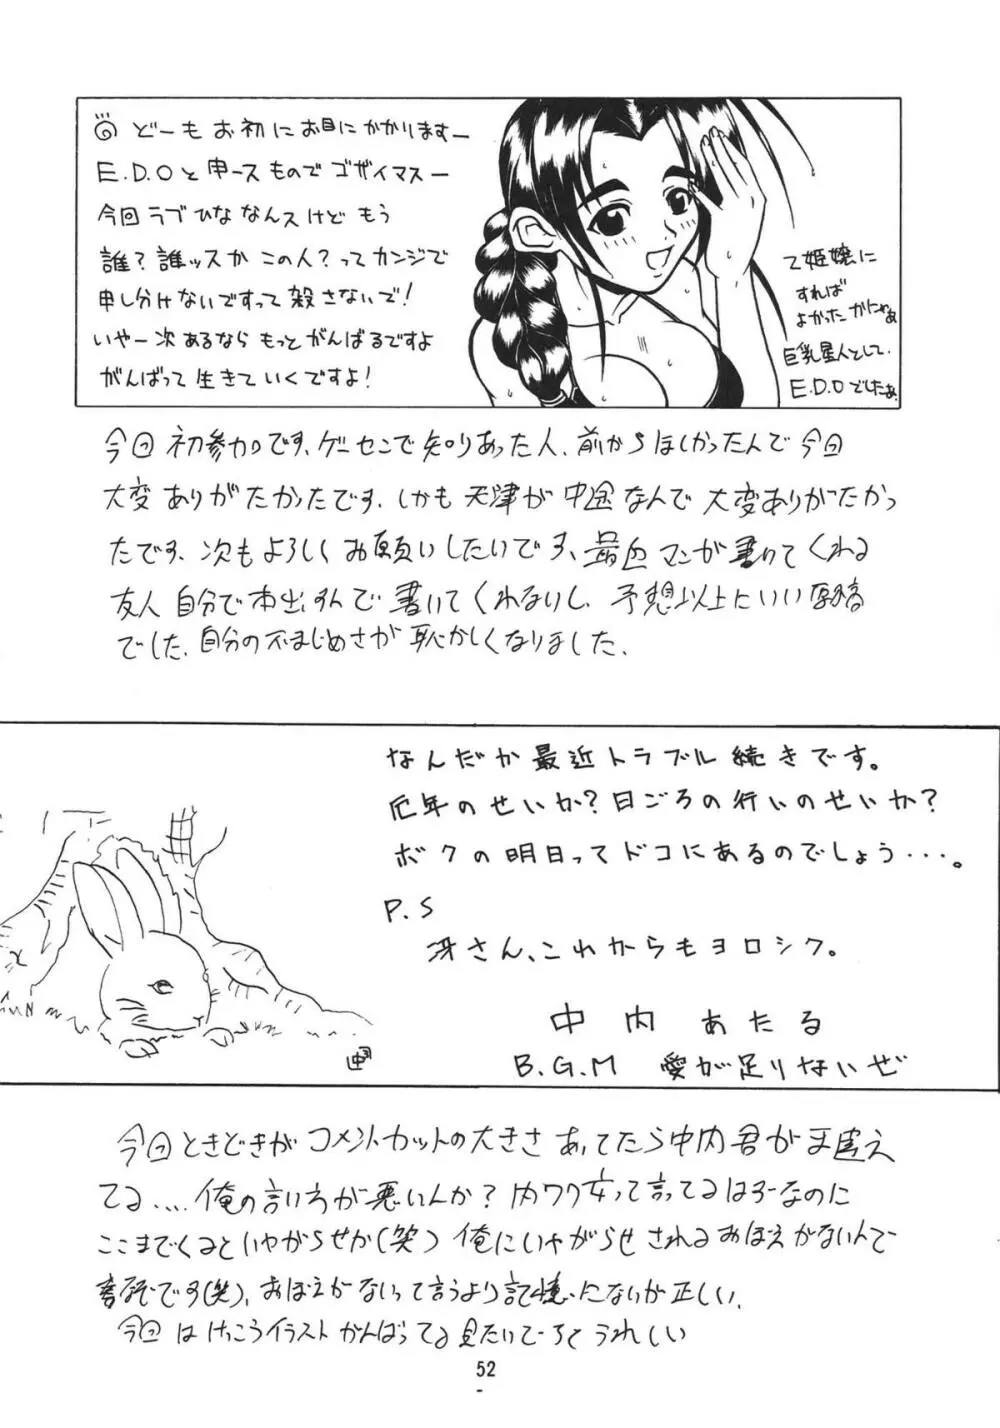 どーも お初に お目に かかりますー
E.D.Oと申ースものでゴザイマスー
今回ラブひななんスけど もう
誰？誰ッスか この人？ってカンジで
申し分けないですって 殺さないで！
いやー次あるなら もっとがんばるですよ
がんばって 生きていくですよ！
乙姫嬢に
すれば
よかったかにゃあ
巨乳星人として.
E.D.Oでしたぁ.
今回 初参加です、ゲーセンで知りあった人、前からほしかったんで今回
大変ありがたかったです、しかも 天津が中途なんで 大変ありがたかっ
たです、次もよろしくお願いしたいです、最近マンガ書いてくれる
友人 自分で本出すんで書いてくれないし、予想以上にいい原稿
でした、自分の不まじめさが恥かしくなりました、
なんだか最近トラブル続きです。
厄年のせいか？日ごろの行いのせいか？
ボクの明日ってドコにあるのでしょう・・・。
P.S
冴さん、これからもヨロシク。
中内 あたる
B.G.M 愛が足りないぜ
今回ときどきがコメントカットの大きさ あってたら中内君が間違え
てる.... 俺の言い方が悪いんか？ 内ワク
って言ってるはずなのに
ここまでくるといやがらせか(笑) 俺にいやがらせされるおぼえがないんで
謎です(笑)、おぼえがないって言うより記憶にないが正しい、
今回はけっこうイラストがんばってる見たいでうれしい
52